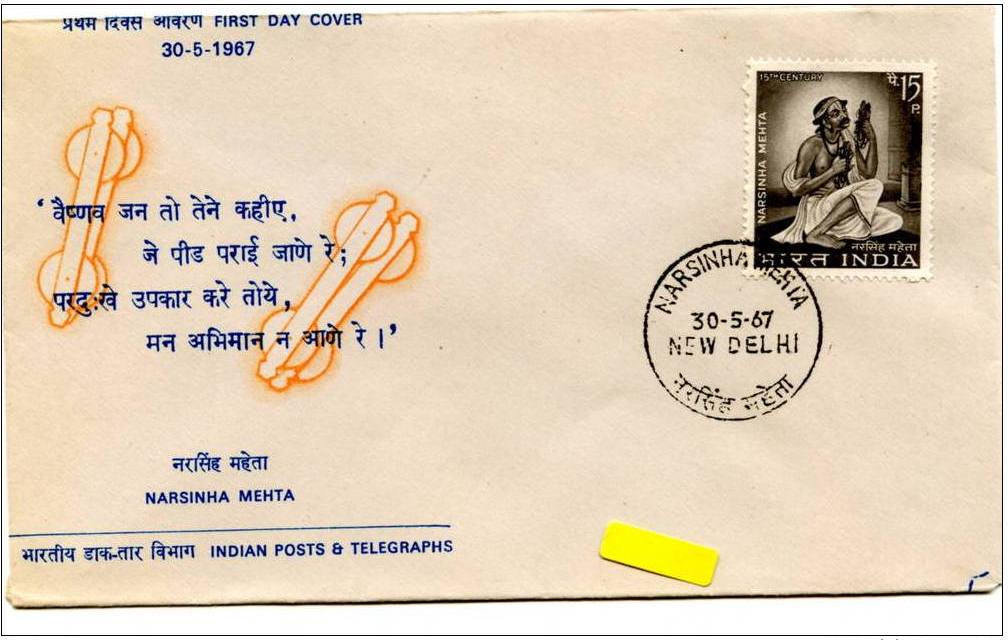 प्रथम दिवस आवरण FIRST DAY COVER
30-5-1967
15TH CENTURY
पै.15
P.
NARSINHA MEHTA
नरसिंह महेता
भारत INDIA
NARSINHA MEHTA
30-5-67
NEW DELHI
नरसिंह महेता
‘वैष्णव जन तो तेने कहीए,
जे पीड पराई जाणे रे;
परदुःखे उपकार करे तोये,
मन अभिमान न आणे रे।’
नरसिंह महेता
NARSINHA MEHTA
भारतीय डाक-तार विभाग INDIAN POSTS & TELEGRAPHS